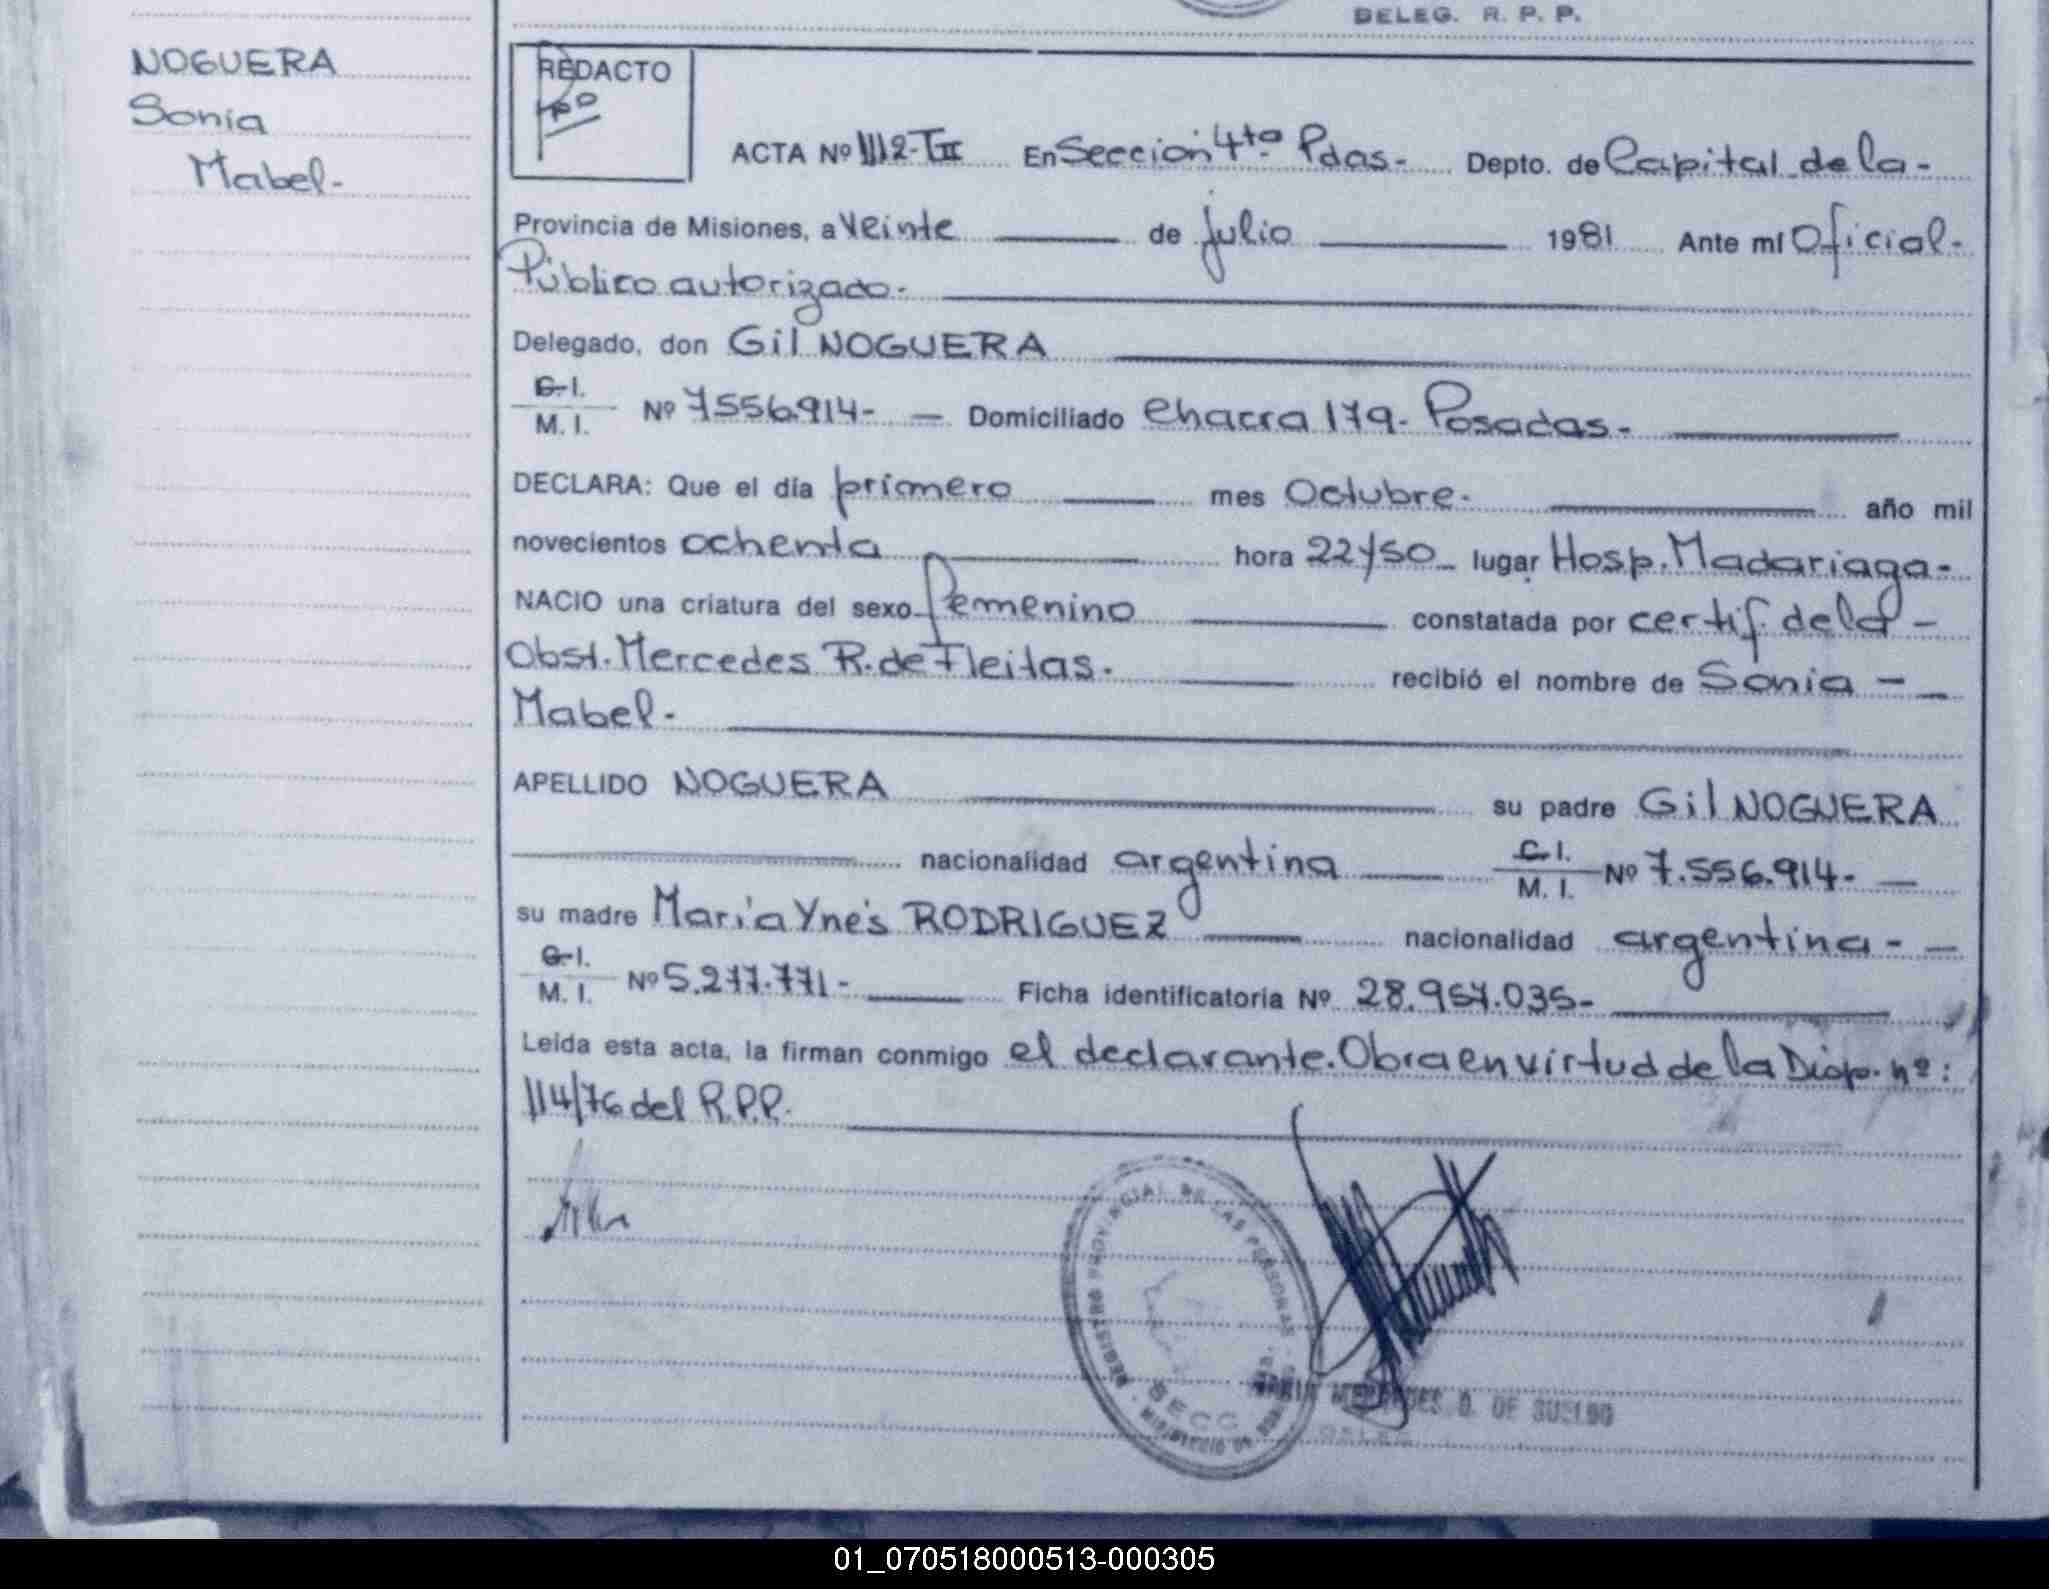 DELEG. R. P. P.
NOGUERA
Sonia
Mabel-
REDACTO
ACTA Nº 1112-TII En Sección 4ta Pdas- Depto. de Capital de la-
Provincia de Misiones, a veinte de julio 1981 Ante mí Oficial-
Público autorizado-
Delegado, don Gil NOGUERA
C.I.
M. I. Nº 7556.914- Domiciliado Chacra 179- Posadas-
DECLARA: Que el día primero mes Octubre- año mil
novecientos ochenta hora 22y50 lugar Hosp. Madariaga-
NACIO una criatura del sexo femenino constatada por certif. de la-
Obst. Mercedes R. de Fleitas. recibió el nombre de Sonia-
Mabel-
APELLIDO NOGUERA su padre Gil NOGUERA
nacionalidad argentina C.I. M. I. Nº 7.556.914-
su madre María Ynés RODRIGUEZ nacionalidad argentina-
C.I.
M. I. Nº 5.277.771- Ficha identificatoria Nº 28.957.035-
Leída esta acta, la firman conmigo el declarante. Obra en virtud de la Disp. nº:
114/76 del R.P.P.
REGISTRO PROVINCIAL DE LAS PERSONAS
SECC. 4ta.
DE SUELDO
01_070518000513-000305